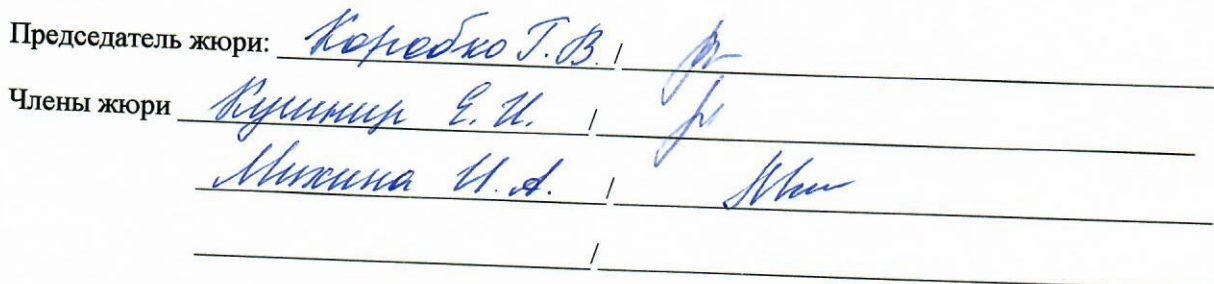 Председатель жюри: Коробко Г.В. /
Члены жюри Кушнир Е.И. /
Михина И.А. /
/